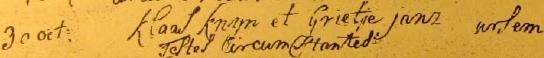 30 oct: Klaas Knyn et Grietje Janz ursem
Testes Circumstantes: